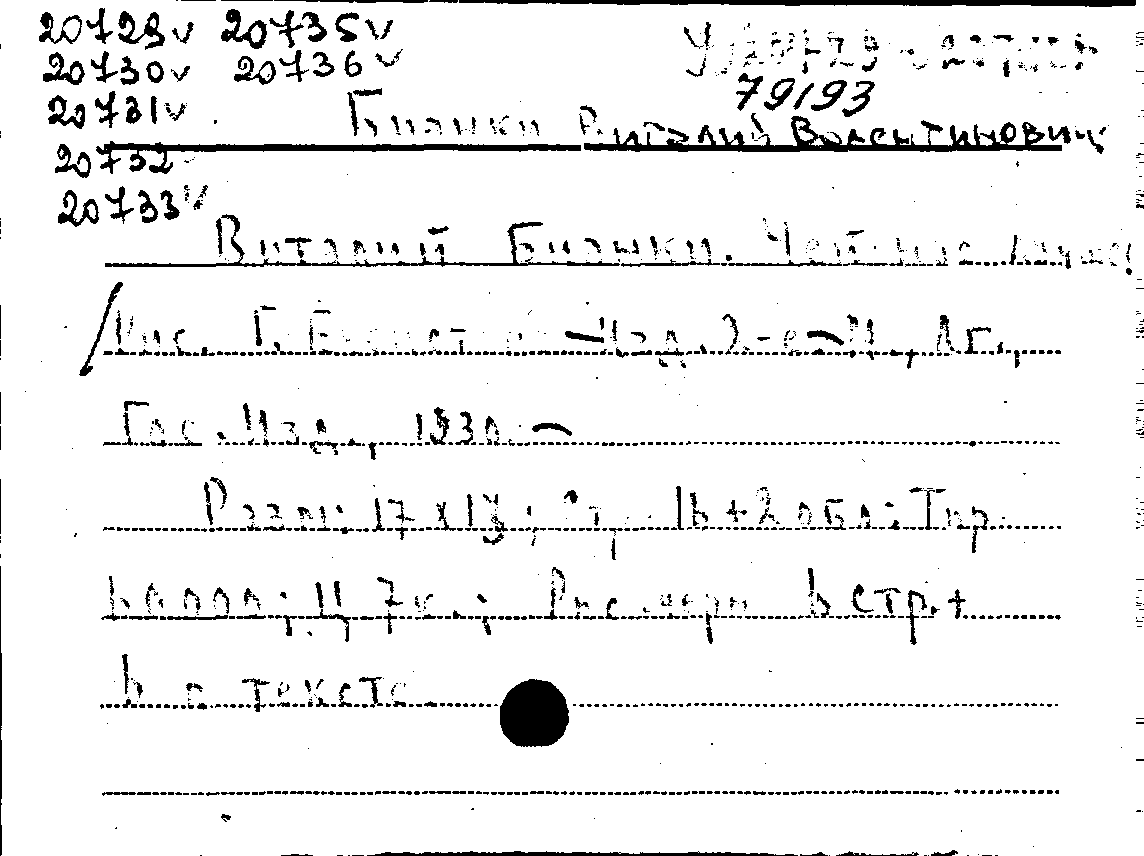 20729v 20735v
20730v 20736v
20731v
20732
20733v
79193
Бианки Виталий Валентинович
Виталий Бианки. Чей нос лучше?
Рис. Г. — Изд. 2-е — М., Лг.,
Гос. Изд., 1930. —
Разм: 17 х 13; Ст. 16 + 2 обл; Тир.
Ц. 7 к.; Рис. черн 6 стр. +
6 в тексте.